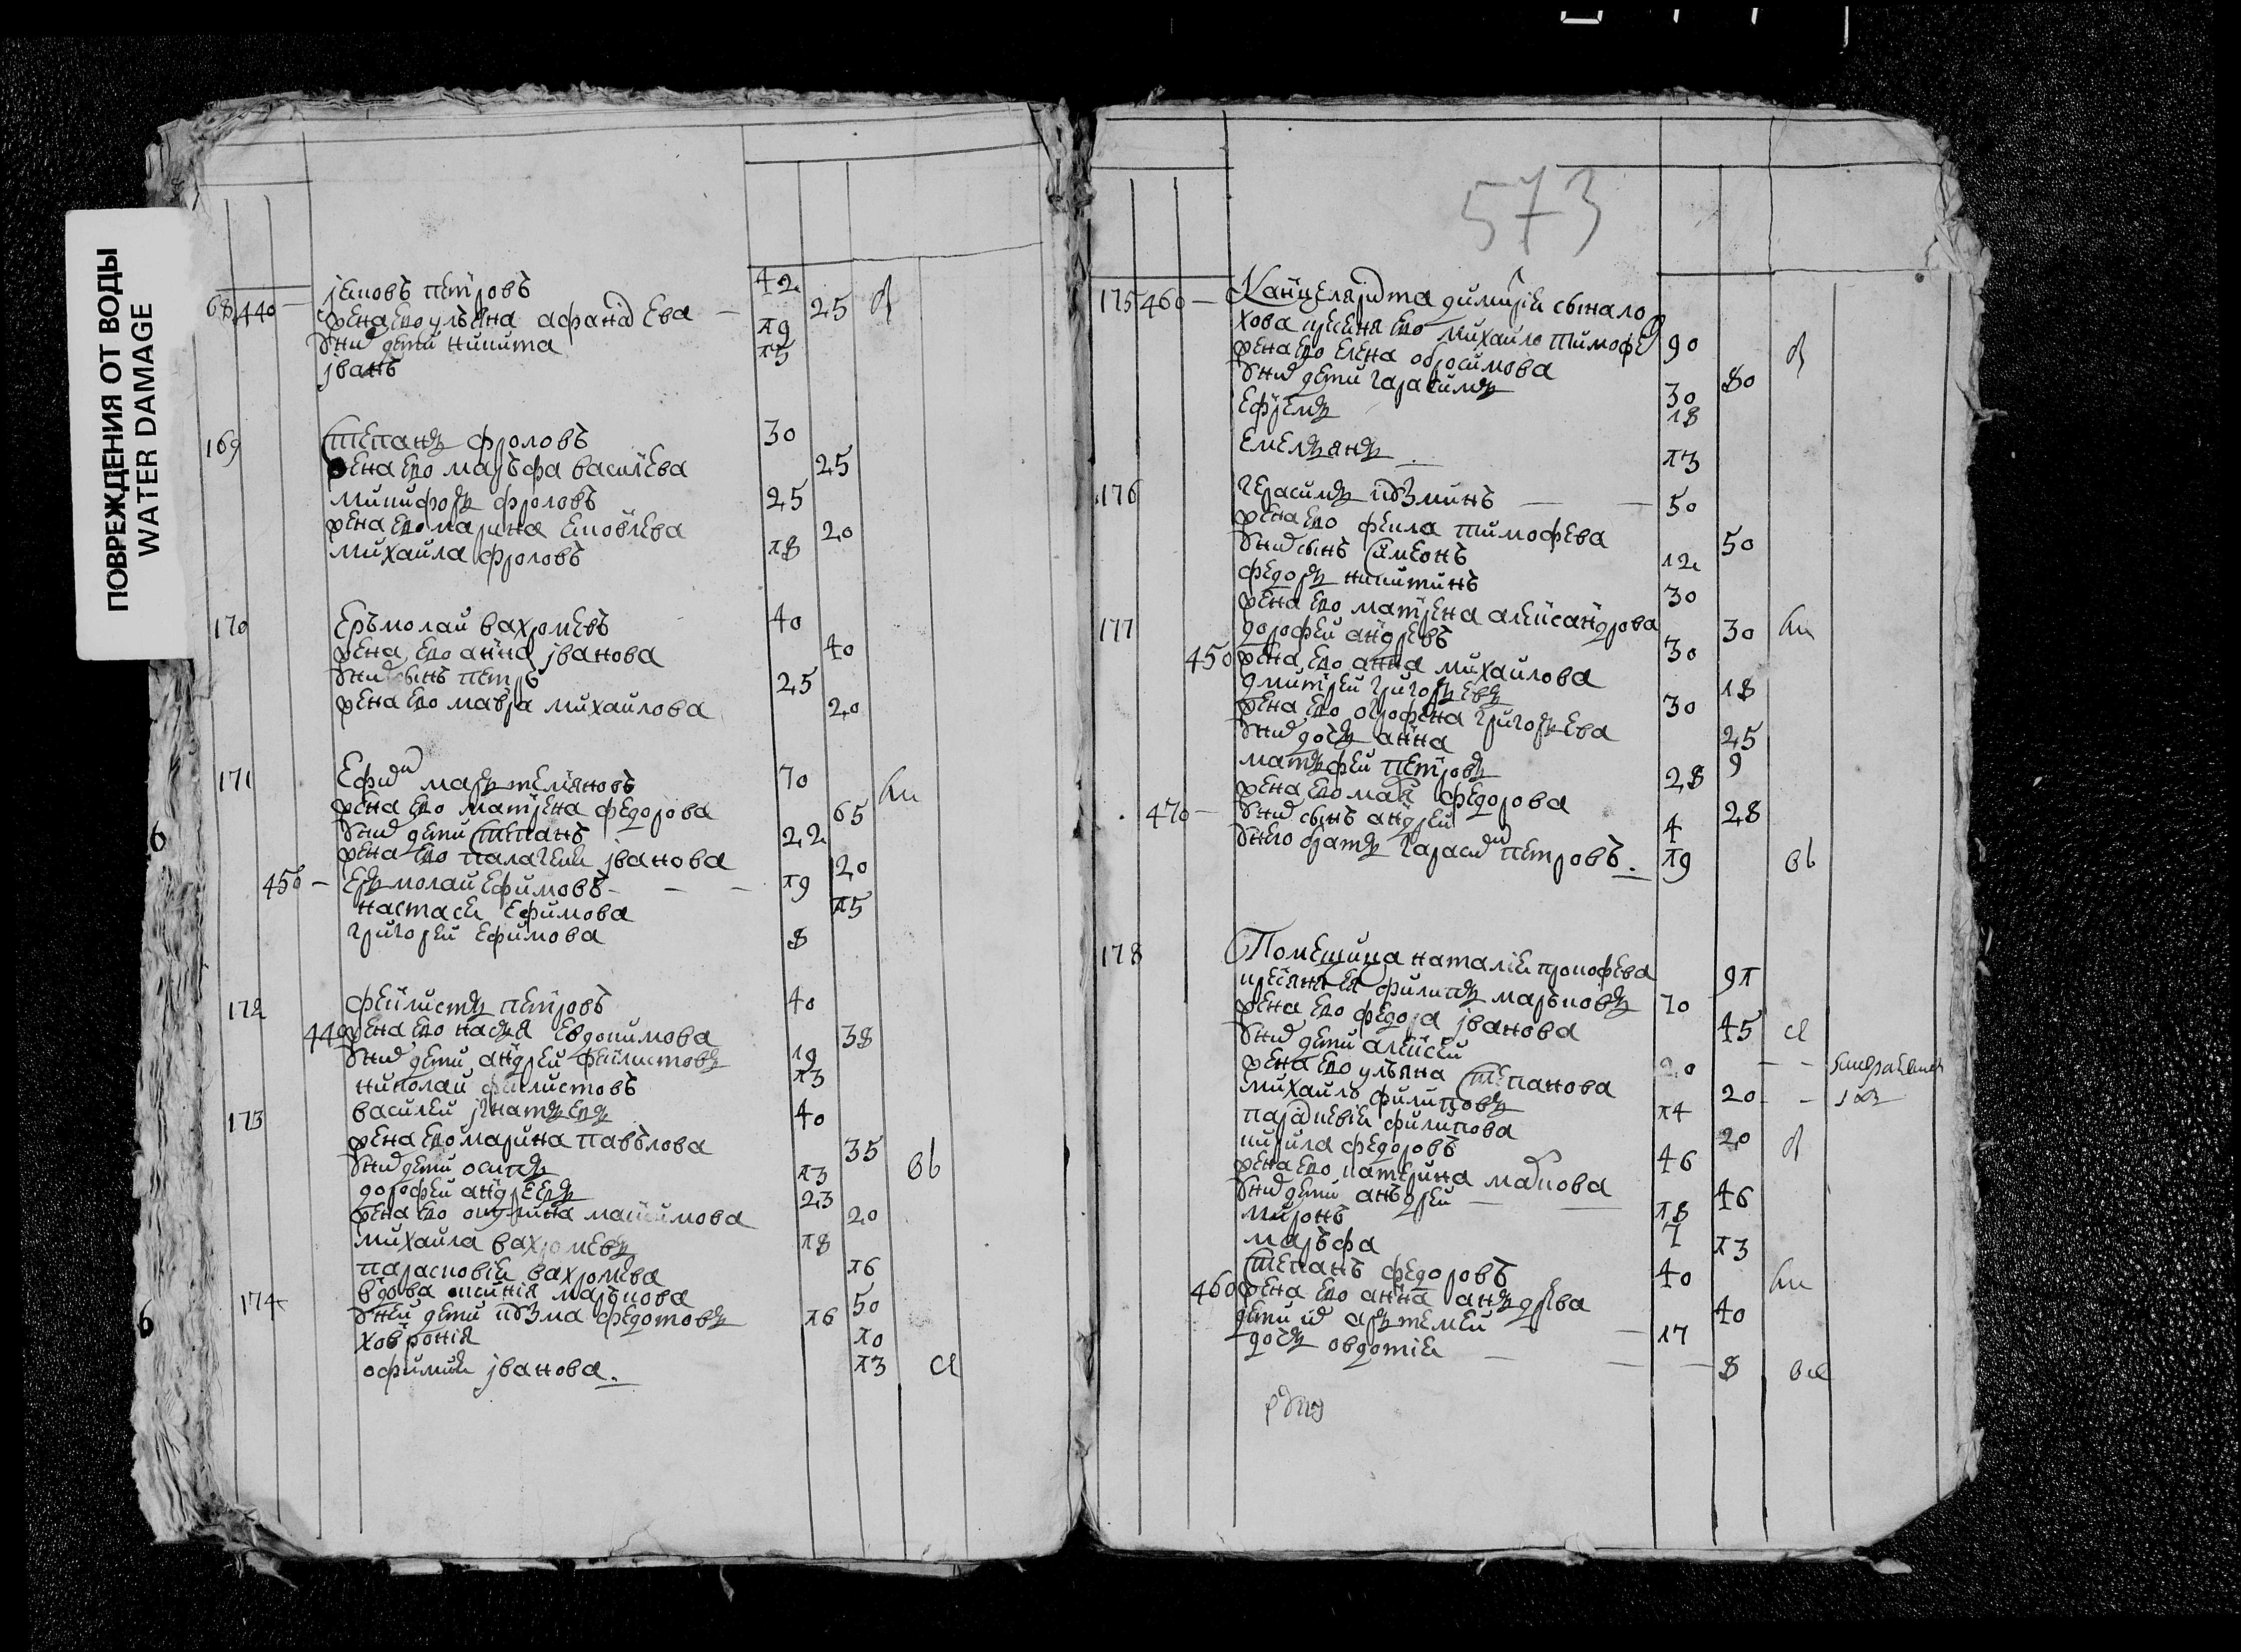 ПОВРЕЖДЕНИЯ ОТ ВОДЫ
WATER DAMAGE
іековъ петровъ 42
68 440 – жена ево ульяна афанасева – 25
у нихъ дети никита π9
іванъ π5
169 степанъ фроловъ 30
жена ево маръфа василева 25
микифоръ фроловъ 25
жена ево марина ековлева 20
михаила фроловъ π8
170 Еръмолаи вахромевъ 40
жена ево анна іванова 40
у них сынъ петръ 25
жена ево мавра михаилова 20
171 Ефим мартемяновъ 70
жена ево матрена федорова 65
у них дети степанъ 22
жена ево палагея іванова 20
450 – Ермолаи Ефимовъ – – – π9
настася Ефимова π5
григореи Ефимова 8
172 феклистъ петровъ 40
449 жена ево настя Евдокимова 38
у них дети андреи феклистовъ 19
николаи феклистовъ π3
173 василеиігнатевъ 40
жена ево марина павълова 35
у них дети осипъ π3 вь
дорофеи андреевъ 23
жена ево акулина максимова 20
михаила вахромевъ π8
парасковія вахромева π6
174 вдова ксинія маръкова 50
у неи дети кузма федотовъ π6
ховронія π0
офимия іванова. π3
573
175 460 – Канцеляриста димитрія сына ло
хова кресянин ево михаило тимофе 90
жена ево елена обросимова 80
у них дети гарасимъ 30
Ефремъ 18
Емельянъ π3
176 герасимъ кузминъ – – 50
жена ево фекла тимофева 50
у них сынъ симеонъ 12
федоръ никитинъ 30
жена ево матрена александрова 30
177 дорофеи андревъ 30
450 жена ево анна михаилова 18
дмитреи григоревъ 30
жена ево огрофена григорева 25
у них дочь анна 9
матфеи петровъ 28
жена ево маря федорова 28
470 – у них сынъ андреи 4
у него братъ гарасим петровъ. π9 вь
178 Помещица наталія прокофева 9π
кресянин ея филипъ маръковъ 70
жена ево федора іванова 45
у них дети алексеи 20
жена ево ульяна степанова 20
михаилъ филиповъ π4
парасковія филипова 20
кирила федоровъ 46
жена ево катерина маркова 46
у них дети анъдреи π8
миронъ 7
маръфа π3
степанъ федоровъ 40
460 жена ево анна андрева 40
дети их артемеи 17
дочь овдотия 8